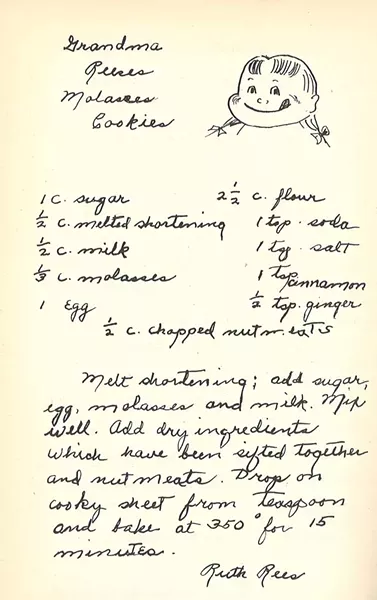 Grandma
Reeses
Molasses
Cookies
1 c. sugar
2 1/2 c. flour
1/2 c. melted shortening
1 tsp. soda
1/2 c. milk
1 tsp. salt
1/3 c. molasses
1 tsp cinnamon
1 Egg
1/2 tsp. ginger
1/2 c. chopped nutmeats
Melt shortening; add sugar,
egg, molasses and milk. Mix
well. Add dry ingredients
which have been sifted together
and nutmeats. Drop on
cooky sheet from teaspoon
and bake at 350° for 15
minutes.
Ruth Rees